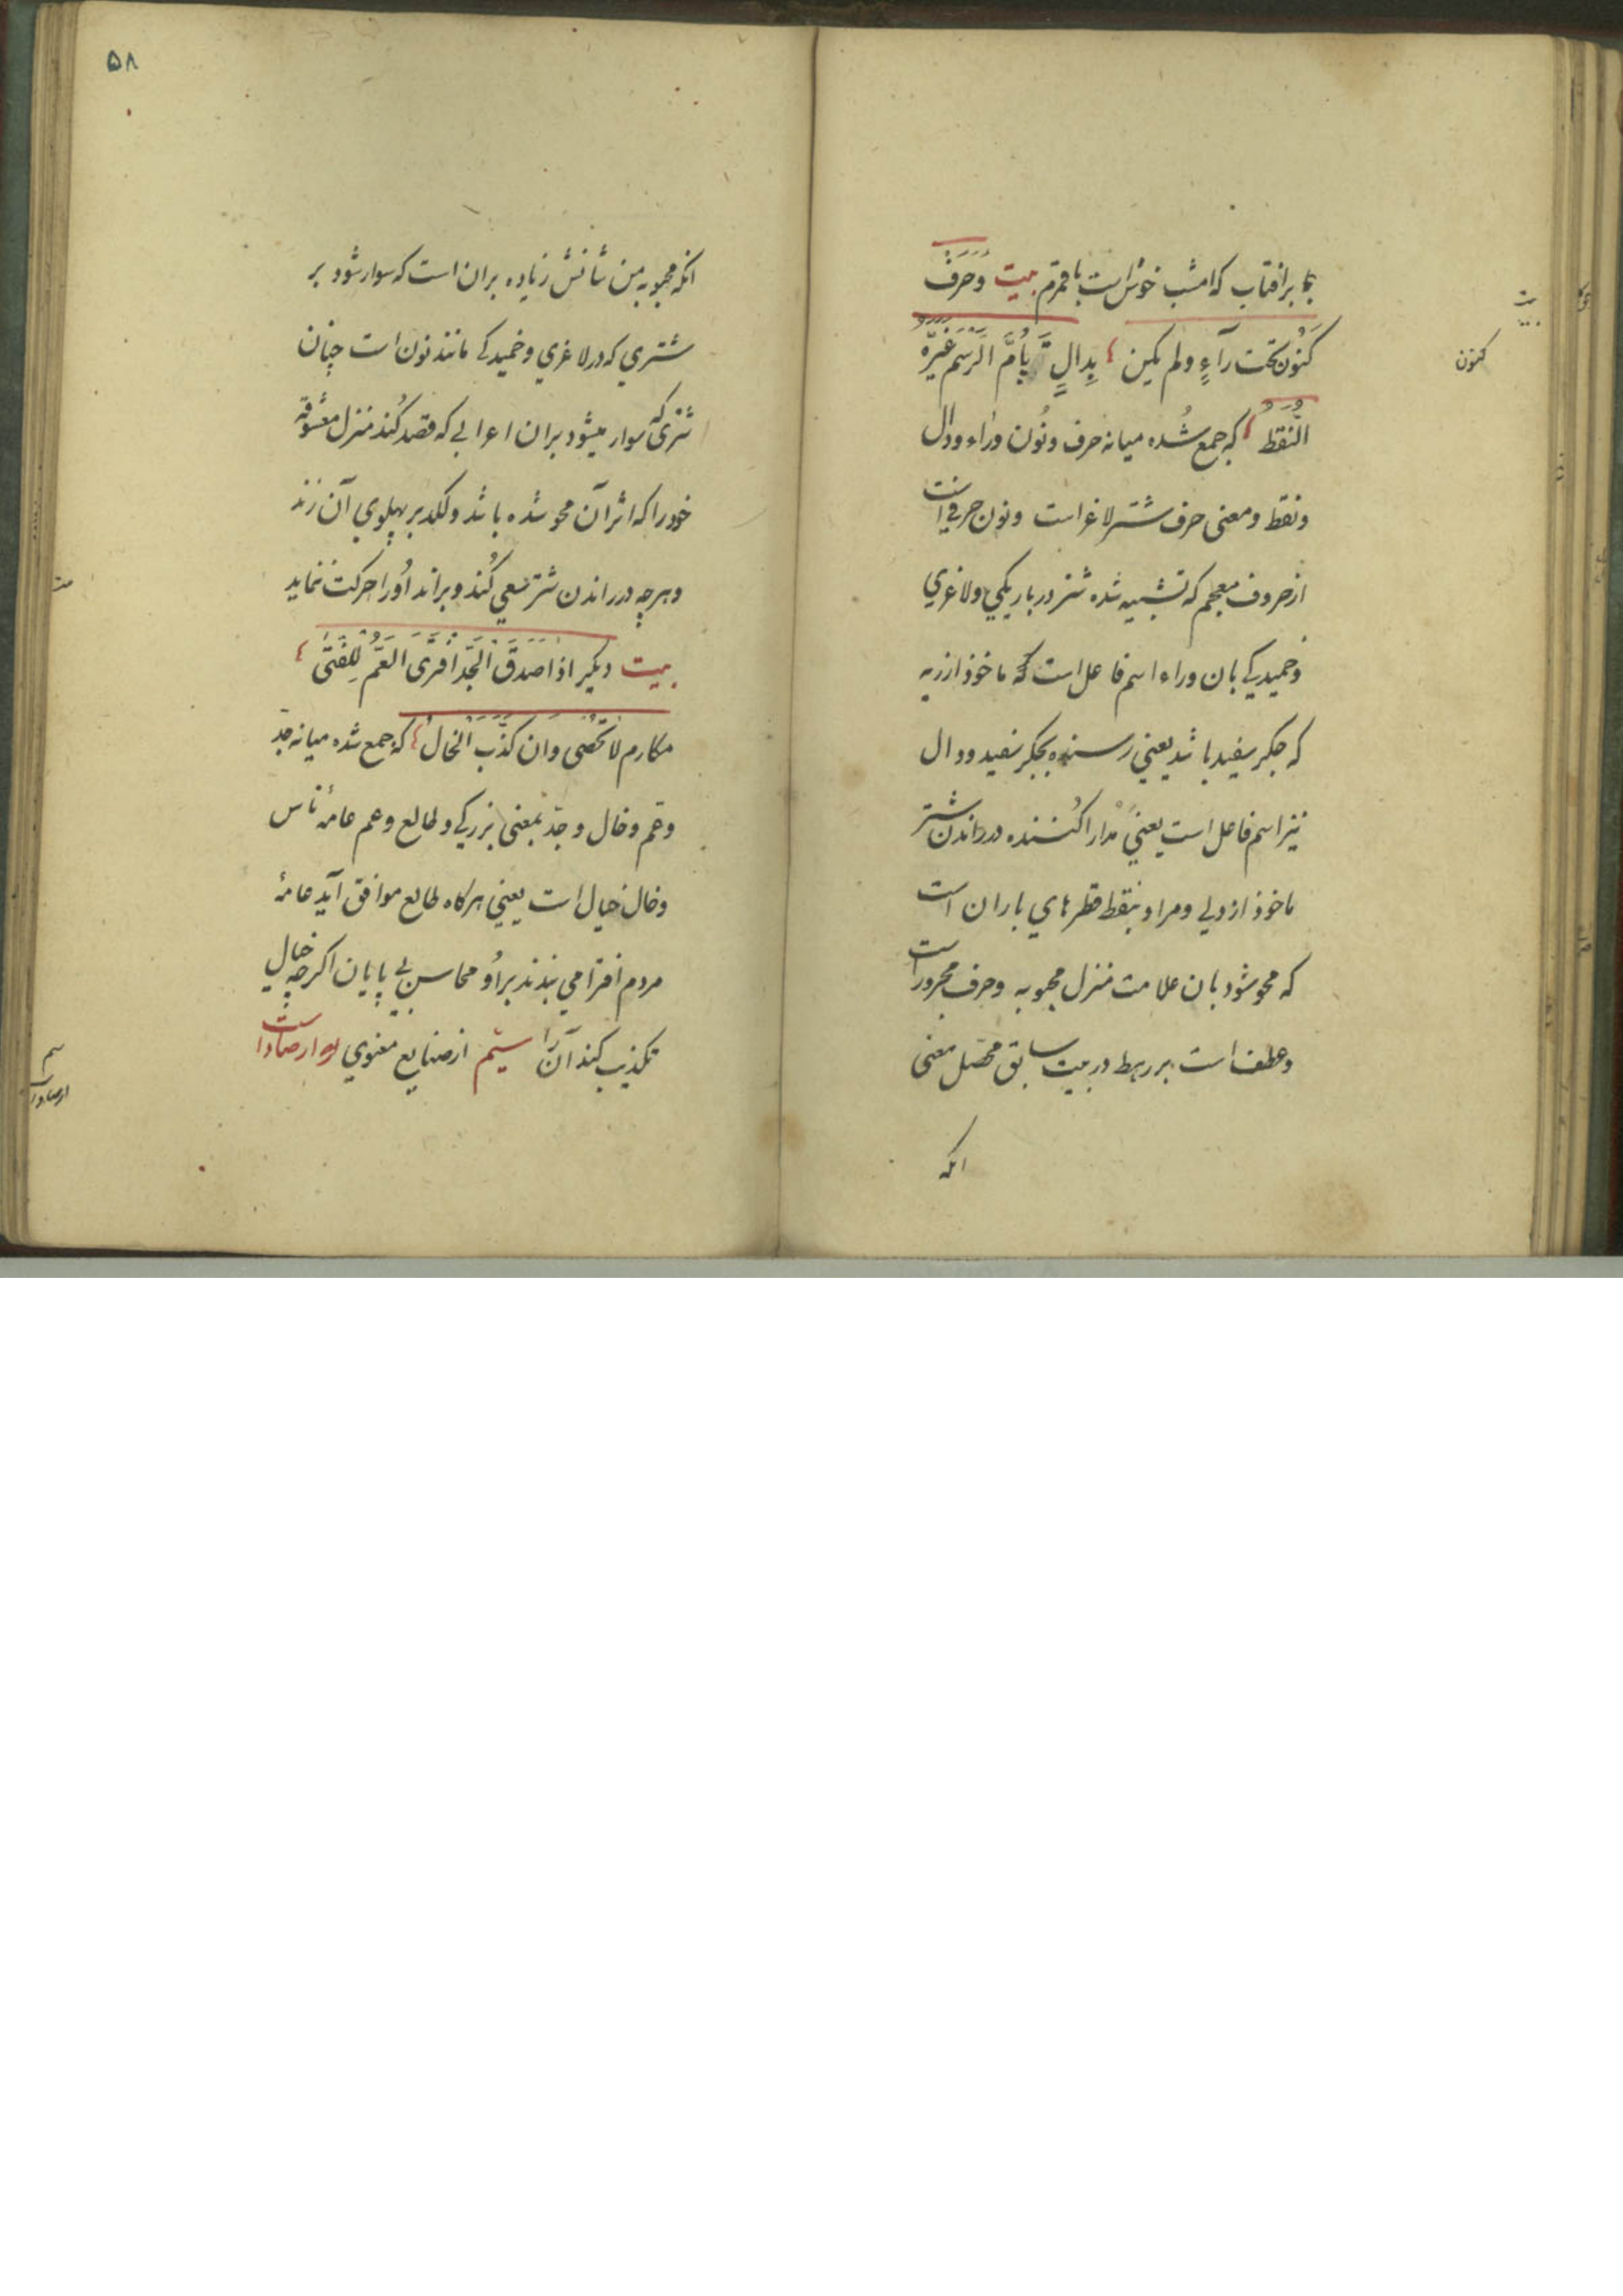 بما بر افتاب که امشب خوش است با قمرم بیت وَحَرَفٍ
کَنُونٍ تحت رآءٍ ولم یکن بِدالٍ یأُمُّ الرّسم غَیَّرهُ
النُّقَطُ که جمع شُده میانه حرف ونُون وراء ودال
ونقط ومعنی حرف شتر لاغر است ونون حرفی است
از حروف معجم که تشبیه شده شتر در باریکی ولاغری
وخمیدگی بان وراء اسم فاعل است که ماخوذ از ریه
که جگر سفید باشد یعنی رسنده بجگر سفید ودال
نیز اسم فاعل است یعنی مدارا کننده در راندن شتر
ماخوذ از دلی ومراد بنقط قطرهای باران است
که محو شود بان علامت منزل محبوبه وحرف مجرور است
وعطف است بر رهط در بیت سابق محصّل معنی
انکه
بیت
کنون
۵۸
انکه محبوبه من شأنش زیاده بران است که سوار شود بر
شتری که در لاغری وخمیدگی مانند نون است چنان
شتری که سوار میشود بران اعرابی که قصد کُند منزل معشوقه
خودرا که اثر آن محو شده باشد ولکد بر پهلوی آن زند
وهرچه در راندن شتر سعی کُند وبراند اُورا حرکت ننماید
بیت دیکر اذا صَدَقَ الجَدّ اَفتَری العَمُّ لِلفَتَی
مکارم لا تخفی وان کَذَبَ الخالُ که جمع شده میانه جدّ
وعم وخال وجدّ بمعنی بزرکی وطالع وعم عامهٔ ناس
وخال خیال است یعنی هرکاه طالع موافق آید عامهٔ
مردم افترا می بندند بر اُو محاسن بی پایان اکرچه خیال
تکذیب کند آنرا سیّم از صنایع معنوی ارصاد است
سیم
ارصاد